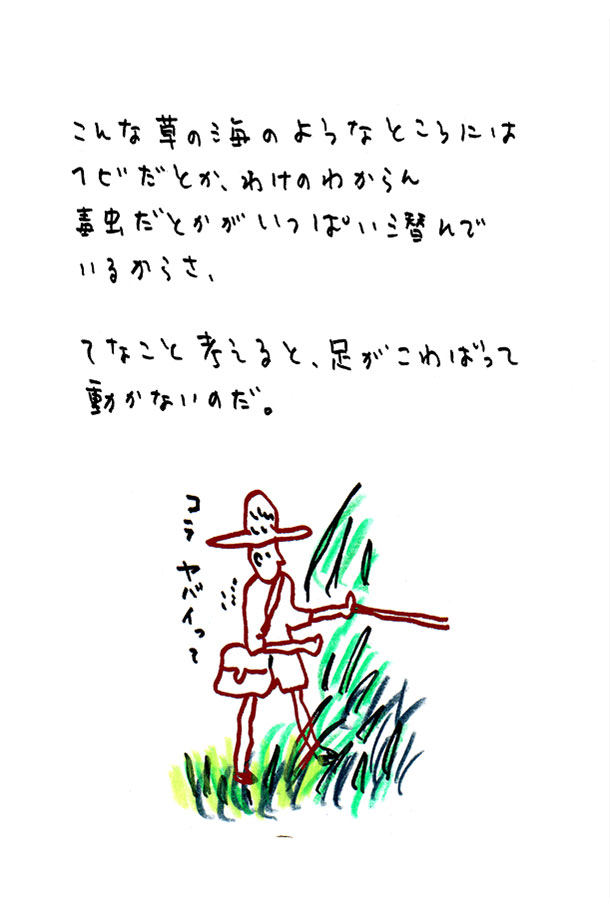 こんな草の海のようなところには
ヘビだとか、わけのわからん
毒虫だとかがいっぱい潜んで
いるからさ、
てなこと考えると、足がこわばって
動かないのだ。
コラ ヤバイって